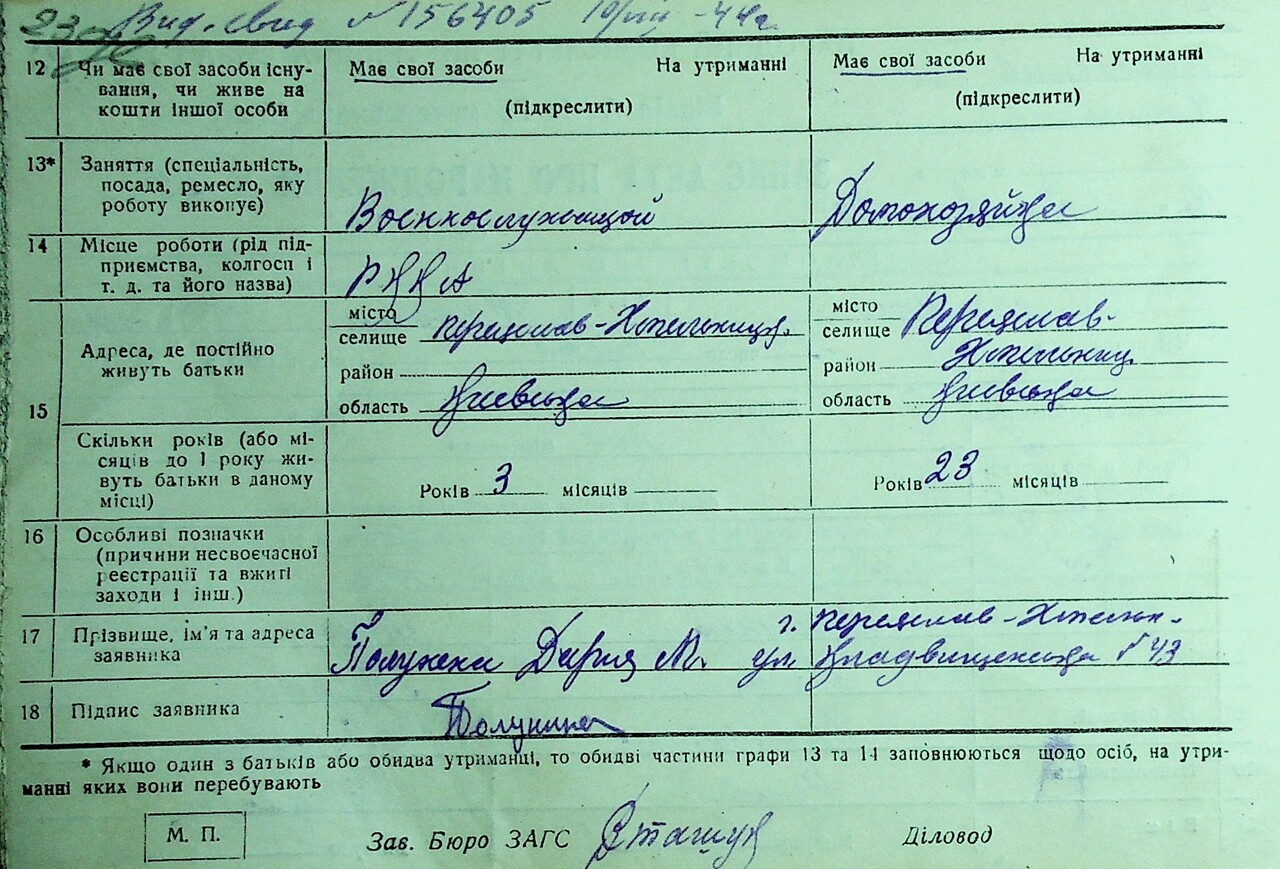 Вид. свид №156405 10/VIII-44г.
12 Чи має свої засоби існу- Має свої засоби На утриманні Має свої засоби На утриманні
вання, чи живе на
кошти іншої особи (підкреслити) (підкреслити)
13* Заняття (спеціальність,
посада, ремесло, яку
роботу виконує) Военнослужащий Домохозяйка
14 Місце роботи (рід під-
приємства, колгосп і
т. д. та його назва) РККА
15 Адреса, де постійно
живуть батьки
місто
селище Переяслав-Хмельницк. 
район
область Киевская
місто
селище Переяслав-
район Хмельниц.
область Киевская
Скільки років (або мі-
сяців до 1 року жи-
вуть батьки в даному
місці)
Років 3 місяців Років 23 місяців
16 Особливі позначки
(причини несвоєчасної
реєстрації та вжиті
заходи і інш.)
17 Прізвище, ім'я та адреса г. Переяслав-Хмельн.
заявника Дария М. ул. №43
18 Підпис заявника Полунина
* Якщо один з батьків або обидва утриманці, то обидві частини графи 13 та 14 заповнюються щодо осіб, на утри-
манні яких вони перебувають
М. П. Зав. Бюро ЗАГС Діловод